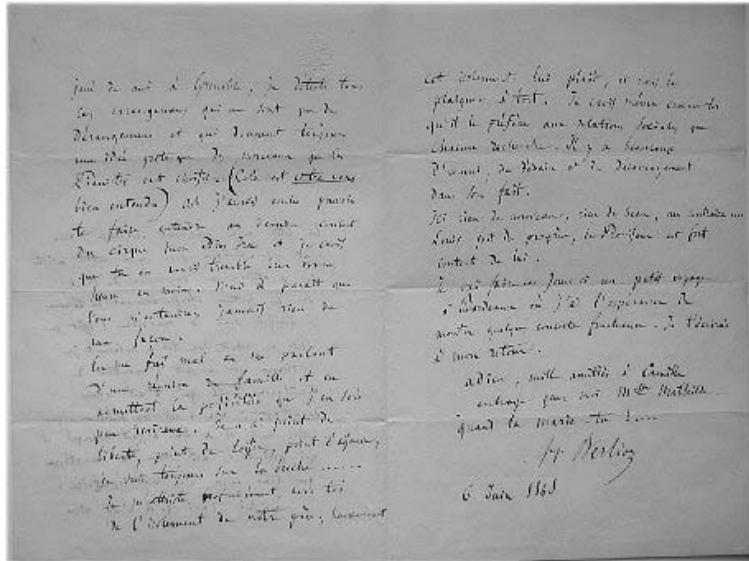 joué de moi à Grenoble, je déteste tous
ces arrangemens qui ne sont que des
dérangemens et qui donnent toujours
une idée grotesque du morceau que les
Pianistes ont choisi. (Cela est entre nous
bien entendu) Ah j'aurais voulu pouvoir
te faire entendre au dernier concert
du cirque mon Dies irae et je crois
que tu en aurais tremblé une bonne
heure au moins. Mais il paraît que
vous n'entendrez jamais rien de
ma façon.
tu me fais mal en me parlant
d'une réunion de famille et en
admettant la possibilité que j'en sois
Je n'ai point de
liberté, point de loisir, point d'argent,
je suis toujours sur la brèche .....
Je m'attriste avec toi
de l'isolement de notre père, heureusement
cet isolement lui plaît, et vous le
plaignez à tort. Je crois même
qu'il le préfère aux relations sociales que
chacun recherche. Il y a beaucoup
d'ennui, de dédain et de découragement
dans son fait.
Ici rien de nouveau, rien de beau, au contraire
Louis fait de progrès, le Proviseur est fort
content de lui.
Je vais faire ces jours-ci un petit voyage
à Bordeaux où j'ai l'espérance de
monter quelque concerts fructueux. Je t'écrirai
à mon retour.
adieu, mille amitiés à Camille
embrasse pour moi Mlle Mathilde.
quand la marie-tu
H Berlioz
6 Juin